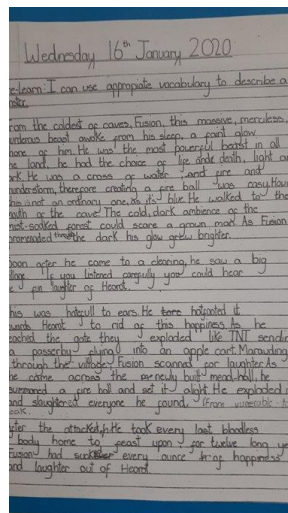 Wednesday 16th January 2020
re-learn: I can use appropiate vocabulary to describe a
rom the coldest of caves, Fusion, this massive, merciless,
beast awoke from his sleep, a faint glow
of him. He was the most powerful beast in all
land, he had the choice of life and death, light or
rk. He was a cross of water and fire and
understorm, therefore creating a fire ball was easy. How
this is not an ordinary one, it's blue. He walked to the
outh of the cave. The cold, dark ambience of the
-soaked forest could scare a grown man. As Fusion
promenaded through the dark his glow grew brighter.
oon after he came to a clearing, he saw a big
If you listened carefully you could hear
laughter of Heorot.
his was hatefull to ears. He hotfooted it
Heorot to rid of this happiness. As he
oached the gate they exploded like TNT sendin
a passerby flying into an apple cart. Marauding
through the village, Fusion scanned for laughter. As
he came across the newly built mead-hall, he
summoned a fire ball and set it alight. He exploded i
and slaughtered everyone he found. (From vunerable - to
eak.
fter the attacked, he took every last bloodless
body home to feast upon. For twelve long ye
Fusion had every ounce of happiness
and laughter out of Heorot.